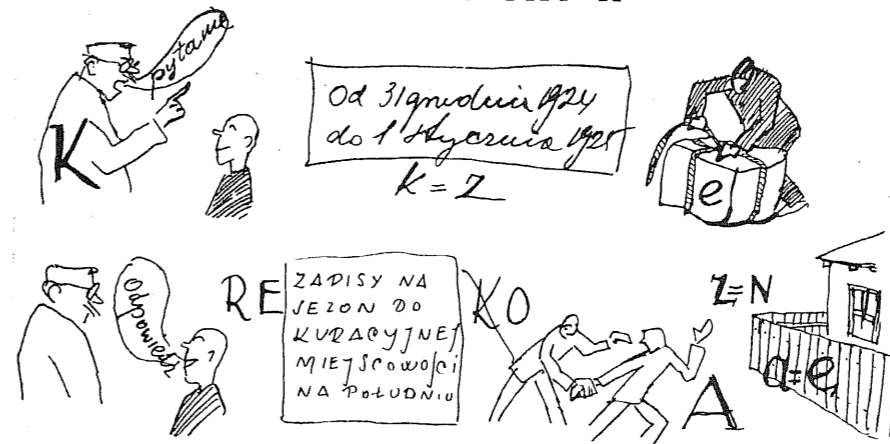 pytanie
K
Od 31 grudnia 1924
do 1 stycznia 1925
K = Z
e
Odpowiedź
RE
ZAPISY NA
SEZON DO
KURACYJNEJ
MIEJSCOWOŚCI
NA POŁUDNIU
KO
A
Z=N
a=e